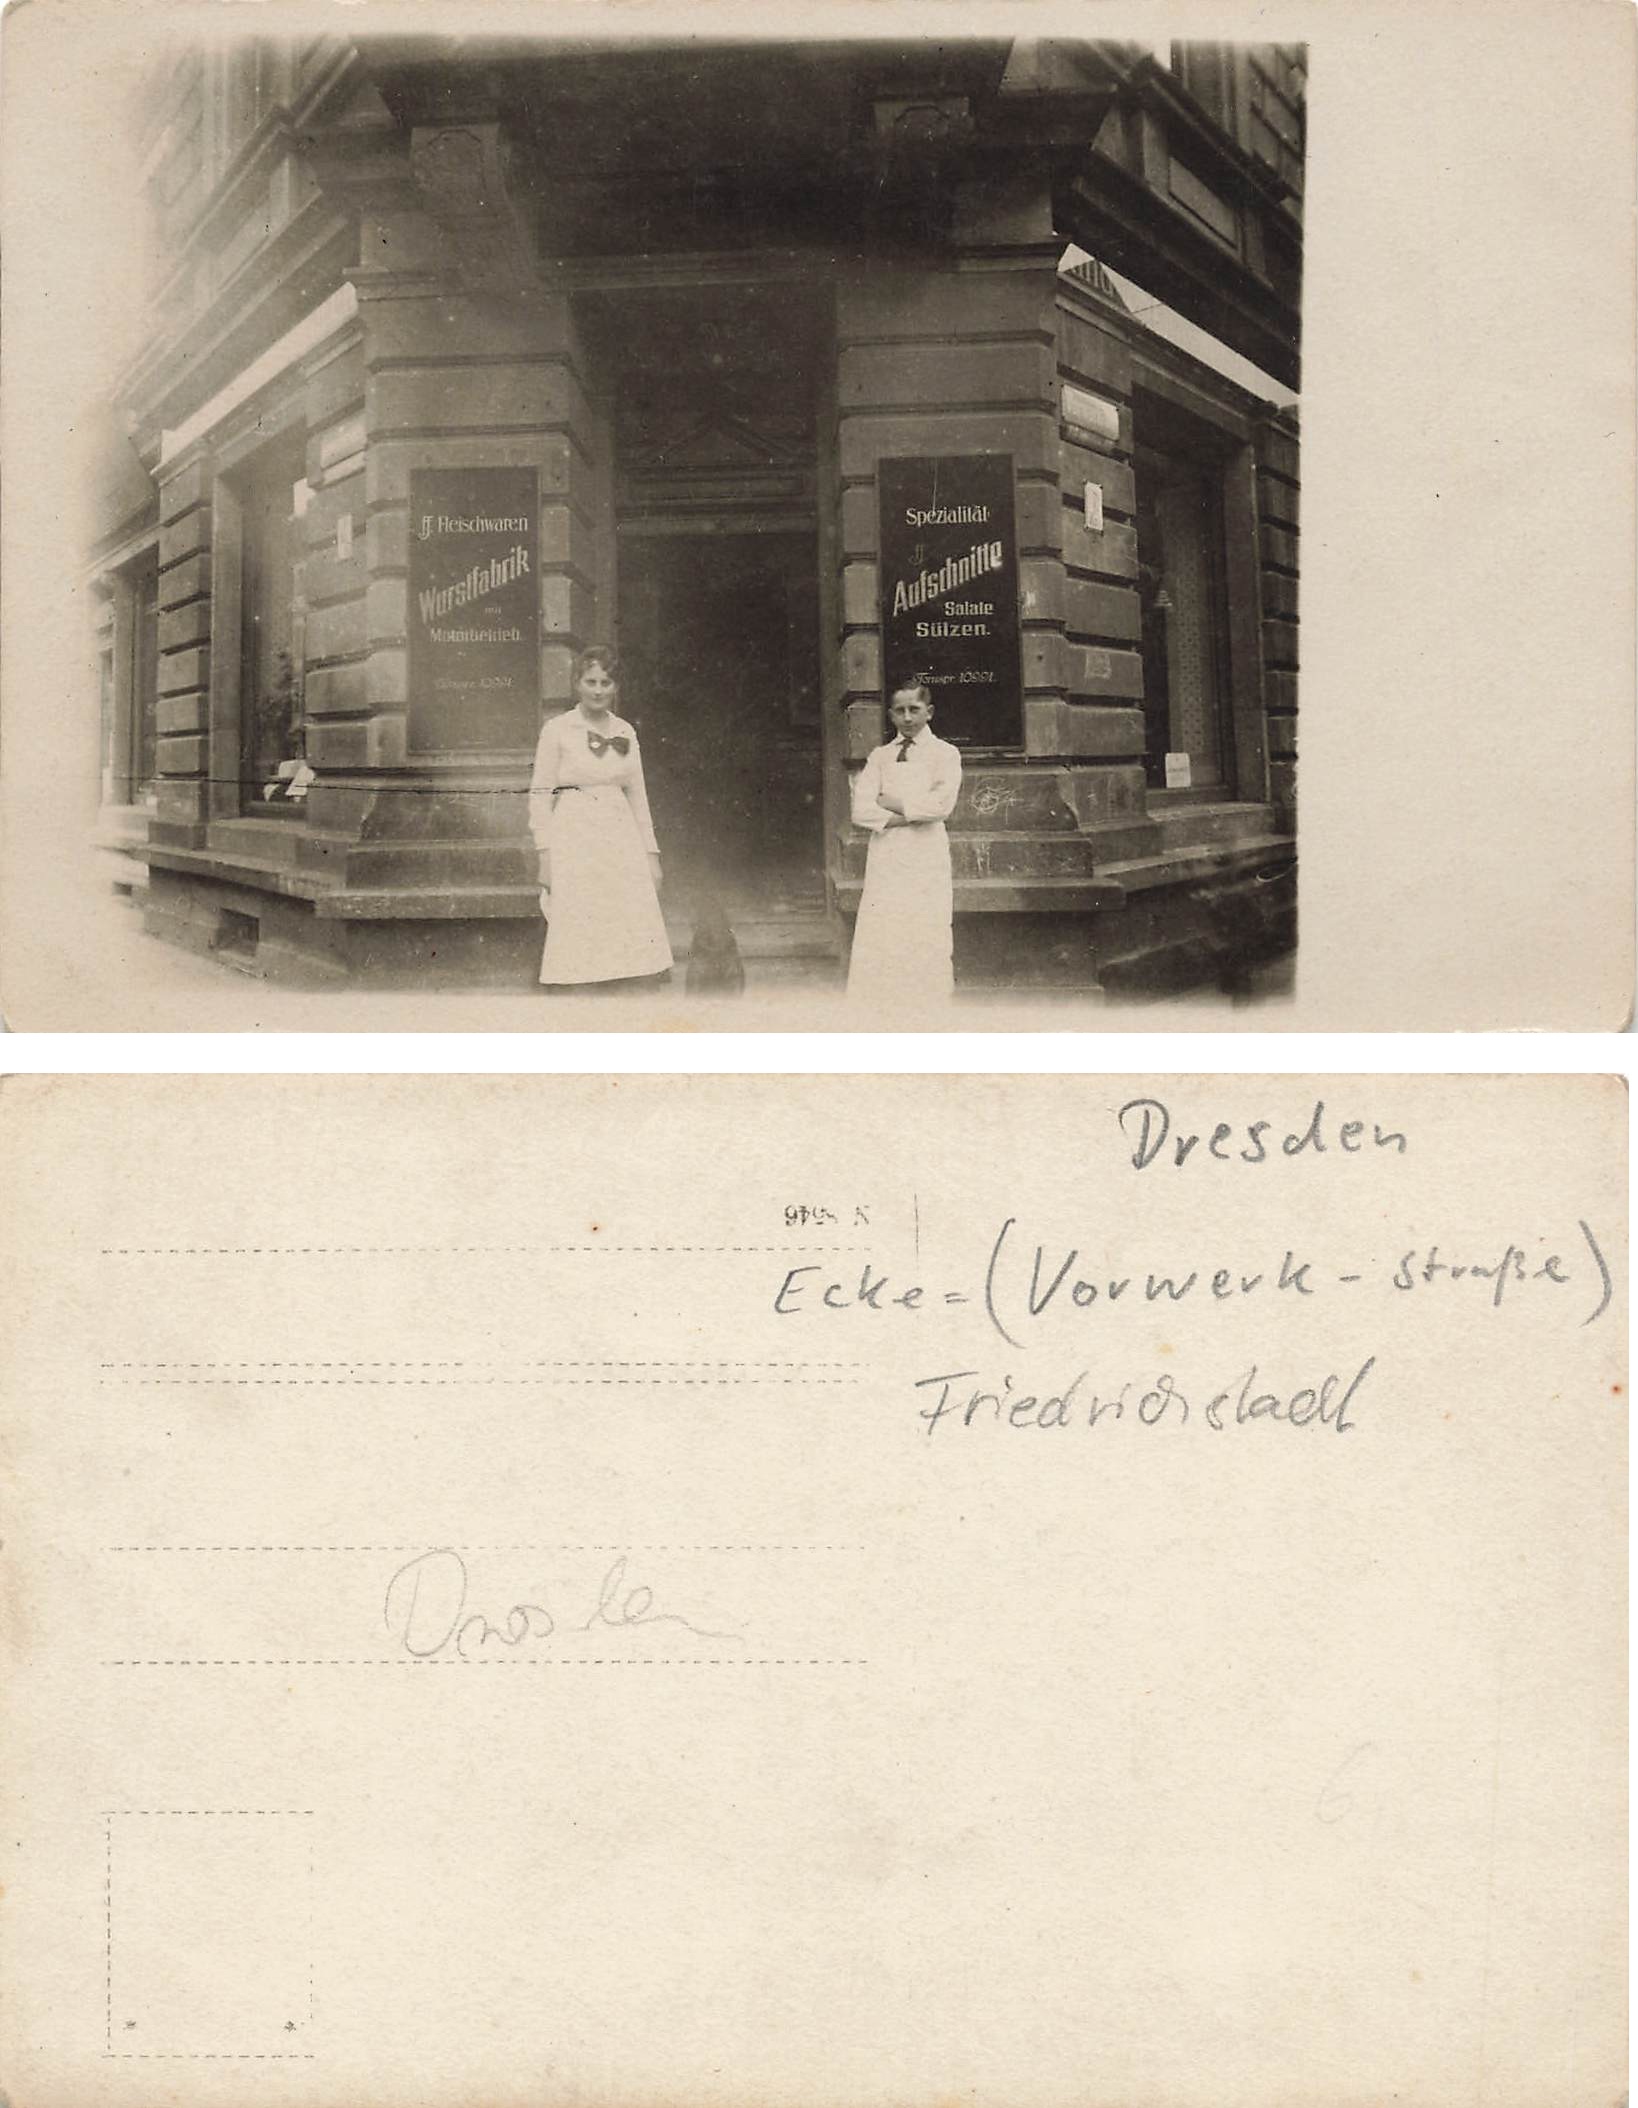 ff Fleischwaren
Wurstfabrik
mit
Motorbetrieb.
Fernspr. 10991.
Spezialität
ff
Aufschnitte
Salate
Sülzen.
Fernspr. 10991.
Dresden
Ecke = (Vorwerk - Straße)
Friedrichstadt
Dresden